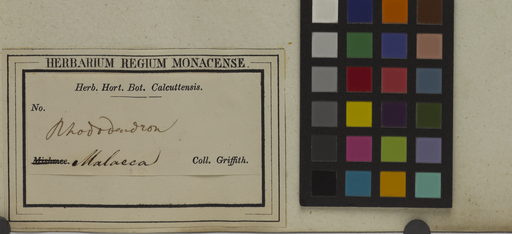 HERBARIUM REGIUM MONACENSE.
Herb. Hort. Bot. Calcuttensis.
No.
Rhododendron
Mishmee. Malacca Coll. Griffith.